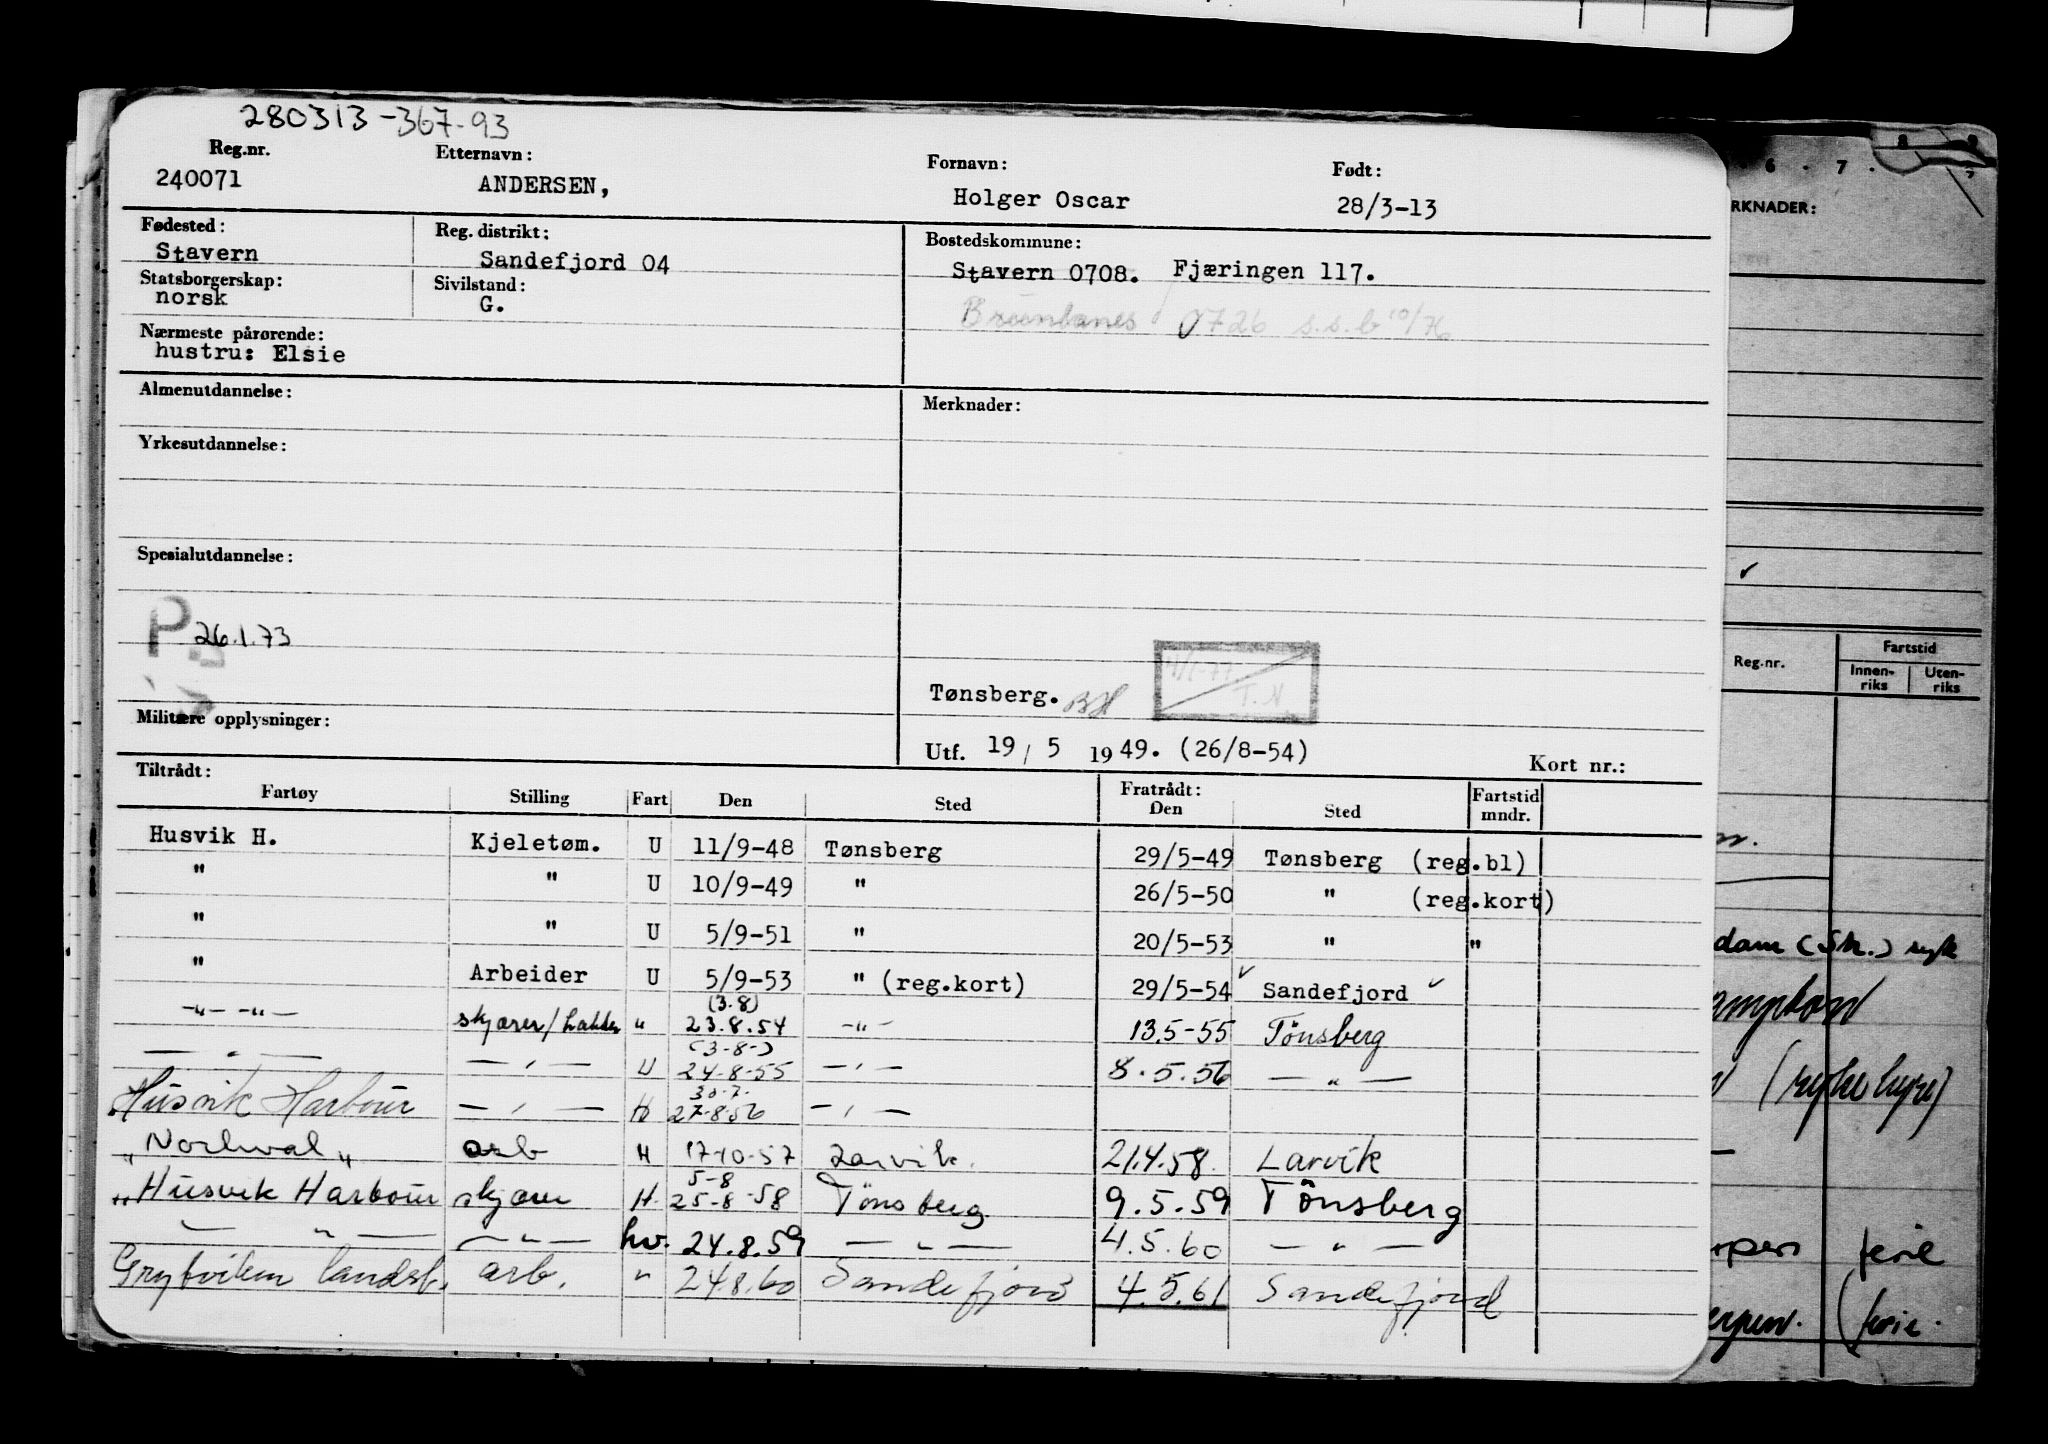 280313-367-93
Reg.nr. Etternavn: Fornavn: Født:
240071 ANDERSEN, Holger Oscar 28/3-13
Fødested: Reg. distrikt: Bostedskommune:
Stavern Sandefjord 04 Stavern 0708. Fjæringen 117.
Statsborgerskap: Sivilstand:
norsk G.
0726 s.s.b 10/76
Nærmeste pårørende:
hustru: Elsie
Almenutdannelse: Merknader:
Yrkesutdannelse:
Spesialutdannelse:
P 26.1.73
T.N.
Tønsberg. BH
Militære opplysninger:
Utf. 19/5 1949. (26/8-54) Kort nr.:
Tiltrådt: Fratrådt:
Fartøy Stilling Fart Den Sted Den Sted Fartstid mndr.
Husvik H. Kjeletøm. U 11/9-48 Tønsberg 29/5-49 Tønsberg (reg.bl)
" " U 10/9-49 " 26/5-50 " (reg.kort)
" " U 5/9-51 " 20/5-53 " "
" Arbeider U 5/9-53 " (reg.kort) 29/5-54 Sandefjord
(3.8)
-"- -"- skjærer/ " 23.8.54 -"- 13.5-55 Tönsberg
(3-8-)
— " — — " — U 24-8-55 — " — 8.5.56 — " —
30.7.
Husvik Harbour — " — H 27-8-56 — " —
"Norhval" arb H 17-10-57 Larvik. 21.4.58. Larvik
5-8
"Husvik Harbour skjærer H 25-8-58 Tönsberg 9.5.59 Tönsberg
— " — — " — hv. 24.8.59 — " — 4.5.60 — " —
Grytviken landst. arb. " 24.8.60 Sandefjord 4.5.61 Sandefjord
6.7.
RKNADER:
Reg.nr. Fartstid
Innen-riks Uten-riks
dam (Sk.) syk
(syke hyre)
ferie
(ferie.